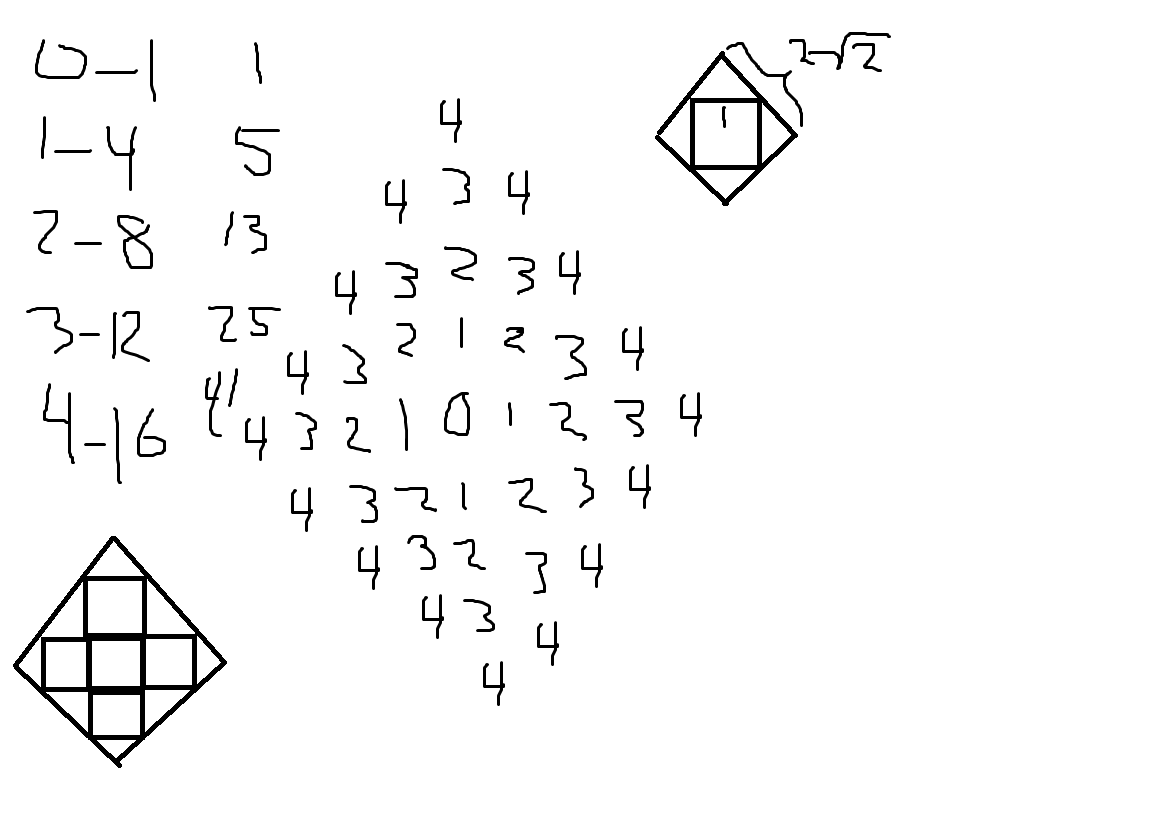 0-1 1
1-4 5
2-8 13
3-12 25
4-16 41
4
4 3 4
4 3 2 3 4
4 3 2 1 2 3 4
4 3 2 1 0 1 2 3 4
4 3 2 1 2 3 4
4 3 2 3 4
4 3 4
4
2-√2
1